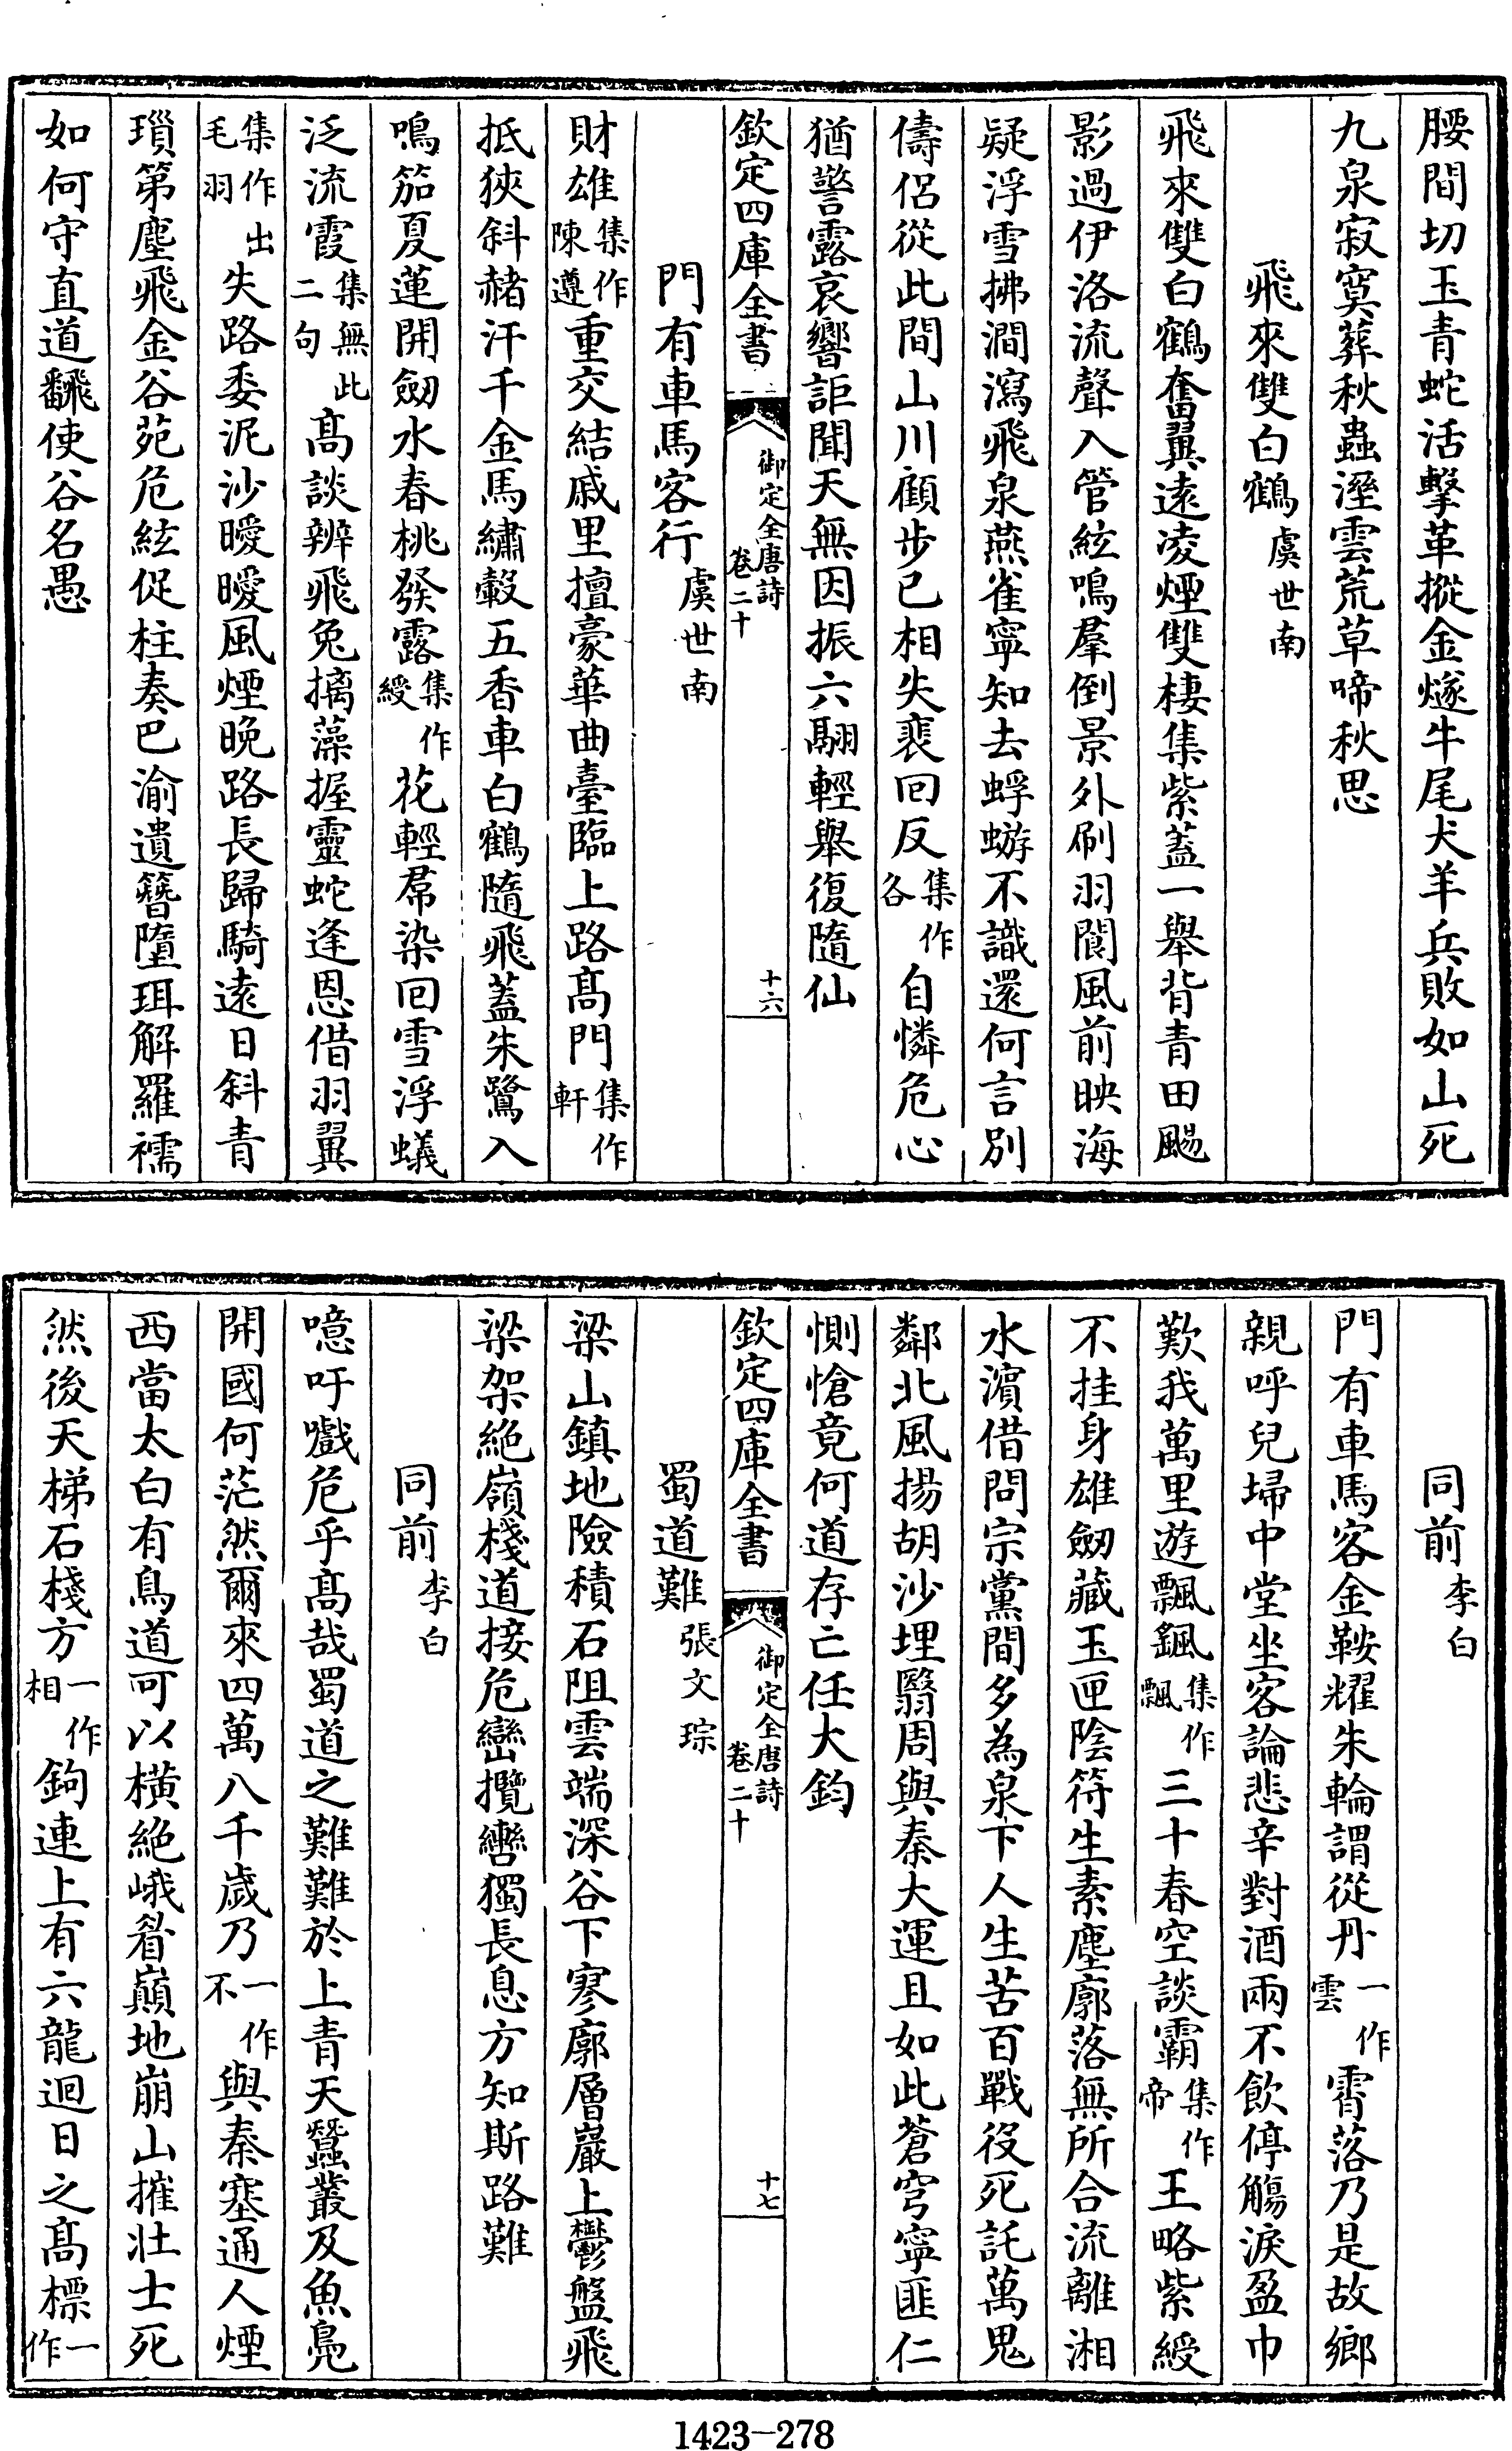 腰間切玉青蛇活擊革摐金燧牛尾犬羊兵敗如山死
九泉寂寞葬秋蟲溼雲荒草啼秋思
飛來雙白鶴 虞世南
飛來雙白鶴奮翼遠凌煙雙棲集紫蓋一舉背青田颺
影過伊洛流聲入管絃鳴羣倒景外刷羽閬風前映海
疑浮雪拂澗瀉飛泉燕雀寧知去蜉蝣不識還何言別
儔侶從此間山川顧步已相失裴回反集作各自憐危心
猶警露哀響詎聞天無因振六翮輕舉復隨仙
欽定四庫全書 御定全唐詩 卷二十 十六
門有車馬客行 虞世南
財雄集作陳遵重交結戚里擅豪華曲臺臨上路髙門集作軒
抵狹斜赭汗千金馬繡轂五香車白鶴隨飛蓋朱鷺入
鳴笳夏蓮開劒水春桃發露集作綬花輕帬染回雪浮蟻
泛流霞集無此二句髙談辨飛兔摛藻握靈蛇逢恩借羽翼
集作出毛羽失路委泥沙曖曖風煙晚路長歸騎遠日斜青
瑣第塵飛金谷苑危絃促柱奏巴渝遺簪墮珥解羅襦
如何守直道飜使谷名愚
同前 李白
門有車馬客金鞍耀朱輪謂從丹一作雲霄落乃是故鄉
親呼兒埽中堂坐客論悲辛對酒兩不飲停觴淚盈巾
歎我萬里遊飄颻集作飄三十春空談霸集作帝王略紫綬
不挂身雄劒藏玉匣陰符生素塵廓落無所合流離湘
水濱借問宗黨間多為泉下人生苦百戰役死託萬鬼
鄰北風揚胡沙埋翳周與秦大運且如此蒼穹寧匪仁
惻愴竟何道存亡任大鈞
欽定四庫全書 御定全唐詩 卷二十 十七
蜀道難 張文琮
梁山鎮地險積石阻雲端深谷下寥廓層巖上鬱盤飛
梁架絕嶺棧道接危巒攬轡獨長息方知斯路難
同前 李白
噫吁戲危乎髙哉蜀道之難難於上青天蠶叢及魚鳧
開國何茫然爾來四萬八千歲乃一作不與秦塞通人煙
西當太白有鳥道可以橫絕峨眉巔地崩山摧壯士死
然後天梯石棧方一作相鉤連上有六龍迴日之髙標一作
1423-278